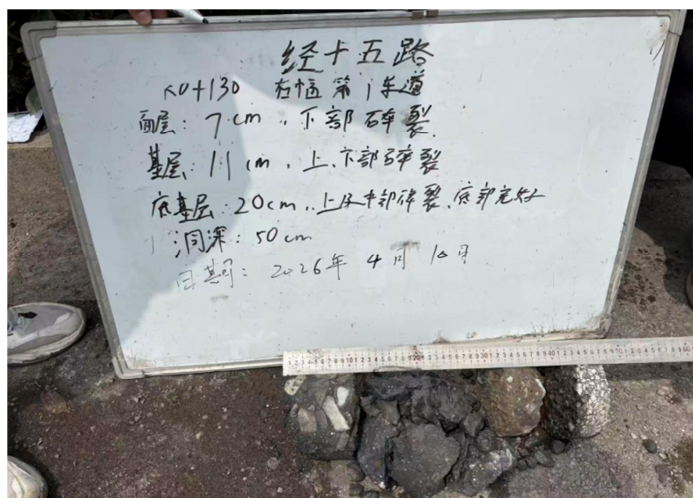 经十五路
K0+130 右幅第1车道
面层：7cm，下部碎裂
基层：11cm，上、下部碎裂
底基层：20cm，上及中部碎裂、底部完好
洞深：50cm
日期：2026年4月10日